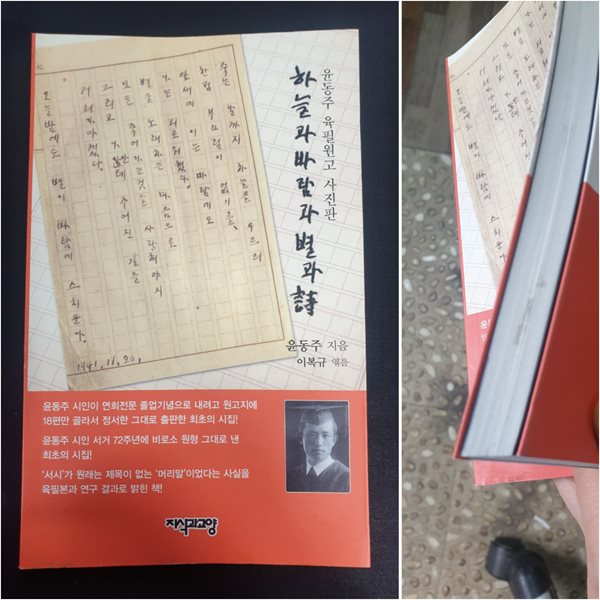 윤동주 육필원고 사진판
하늘과 바람과 별과 詩
윤동주 지음
이복규 엮음
죽는 날까지 하늘을 우르러
한점 부끄럼이 없기를,
잎새에 이는 바람에도
나는 괴로워했다.
별을 노래하는 마음으로
모든 죽어가는것을 사랑해야지
그리고 나안테 주어진 길을
거러가야겠다.
오늘밤에도 별이 바람에 스치운다.
1941.11.20.
윤동주 시인이 연희전문 졸업기념으로 내려고 원고지에
18편만 골라서 정서한 그대로 출판한 최초의 시집!
윤동주 시인 서거 72주년에 비로소 원형 그대로 낸
최초의 시집!
'서시'가 원래는 제목이 없는 '머리말'이었다는 사실을
육필본과 연구 결과로 밝힌 책!
지식과교양